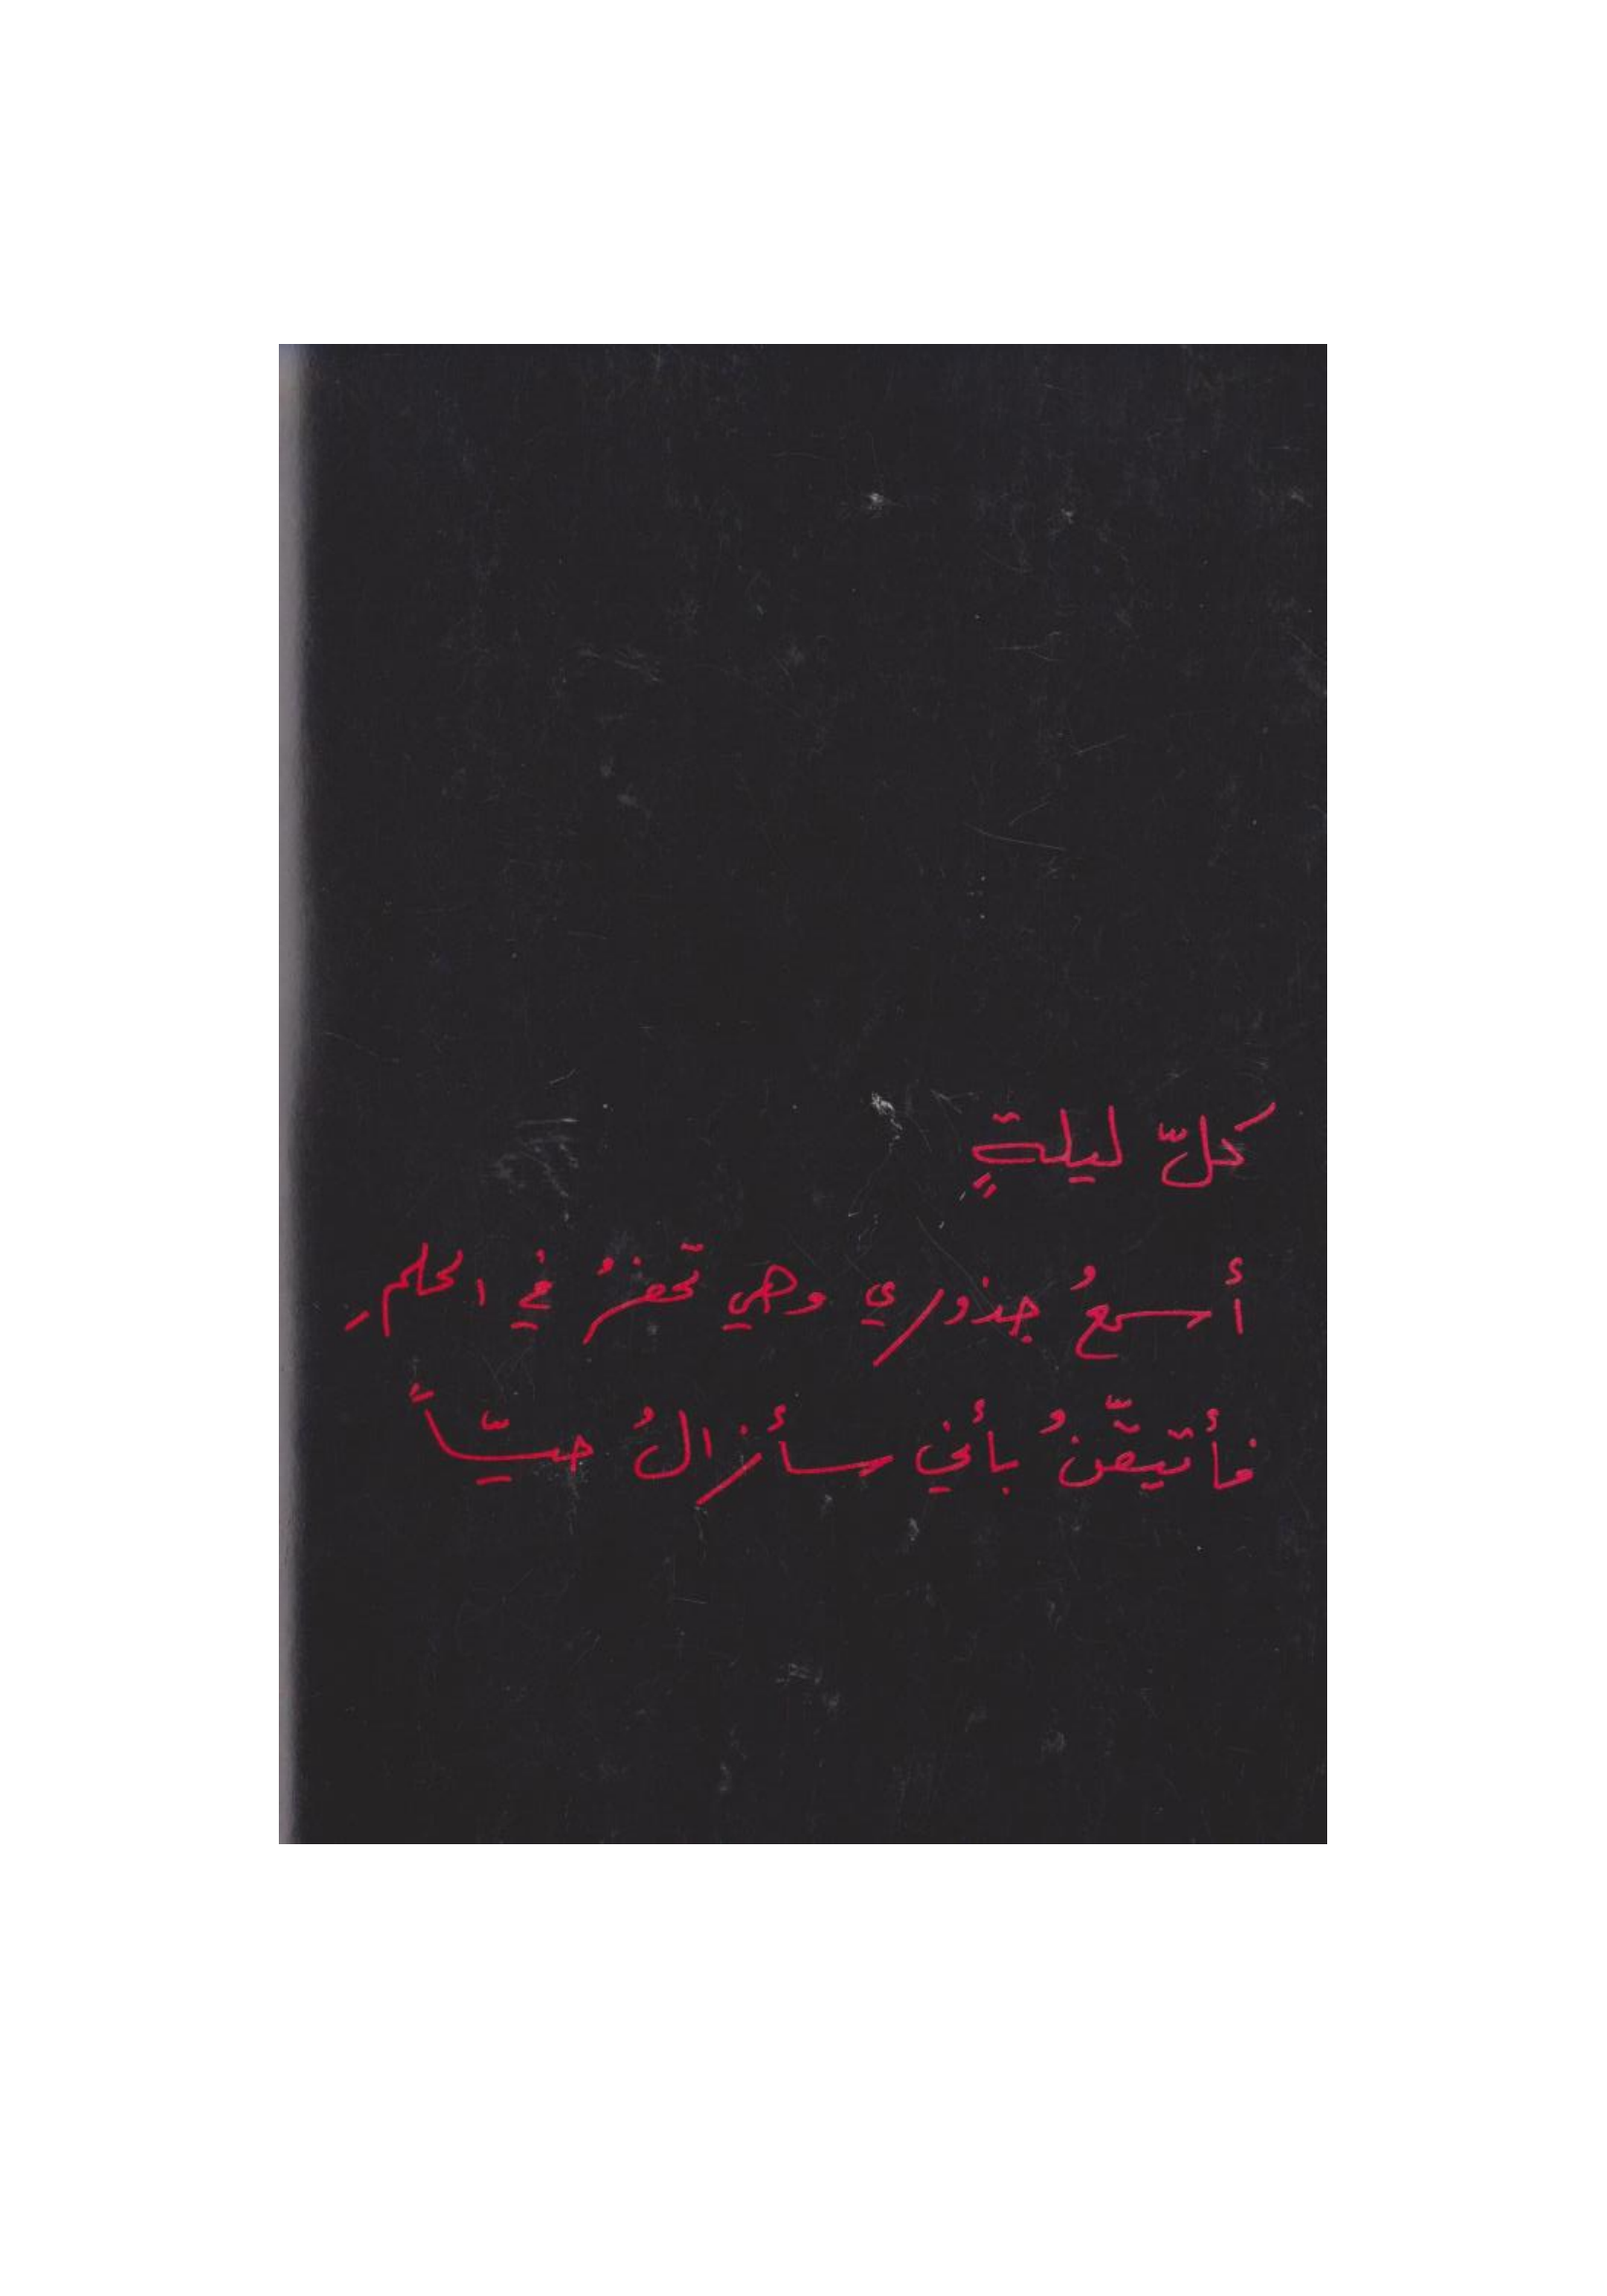 كلّ ليلةٍ
أسمعُ جذوري وهي تحفرُ في الحلمِ
فأتيقّنُ بأني سأزالُ حيّاً